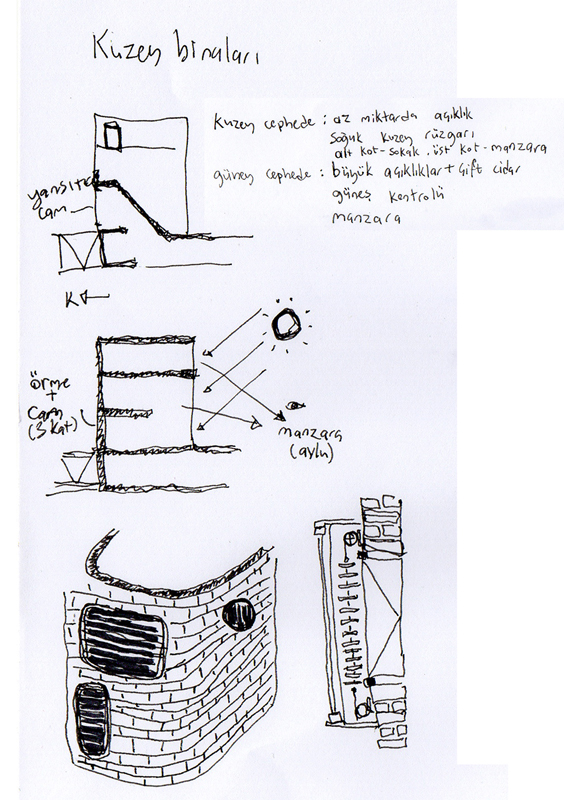 Kuzey binaları
kuzey cephede : az miktarda açıklık
soğuk kuzey rüzgarı
alt kot-sokak, üst kot-manzara
güney cephede : büyük açıklıklar + çift cidar
güneş kontrolü
manzara
yansıtıcı
cam
K
örme
+
cam
(3 kat)
manzara
(avlu)